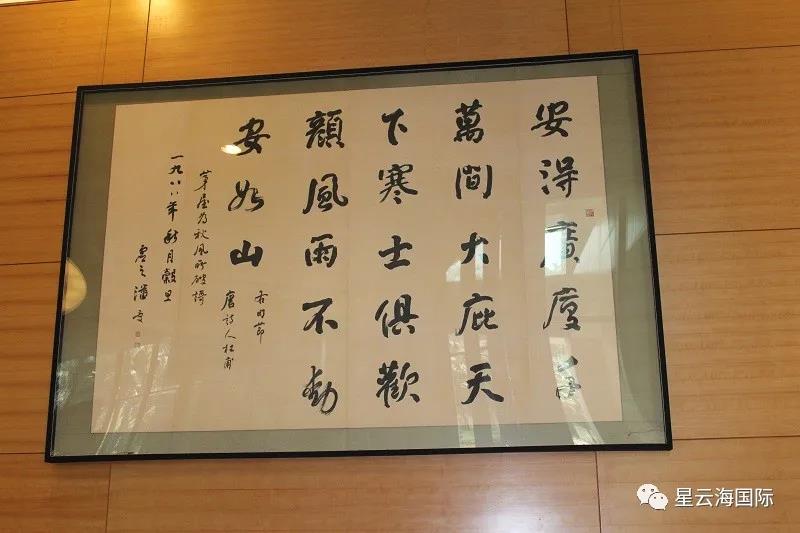 安得廣廈千
萬間大庇天
下寒士俱歡
顏風雨不動
安如山
唐詩人杜甫
茅屋為秋風所破謌
一九八八年秋月穀旦
虛之潘受
星云海国际